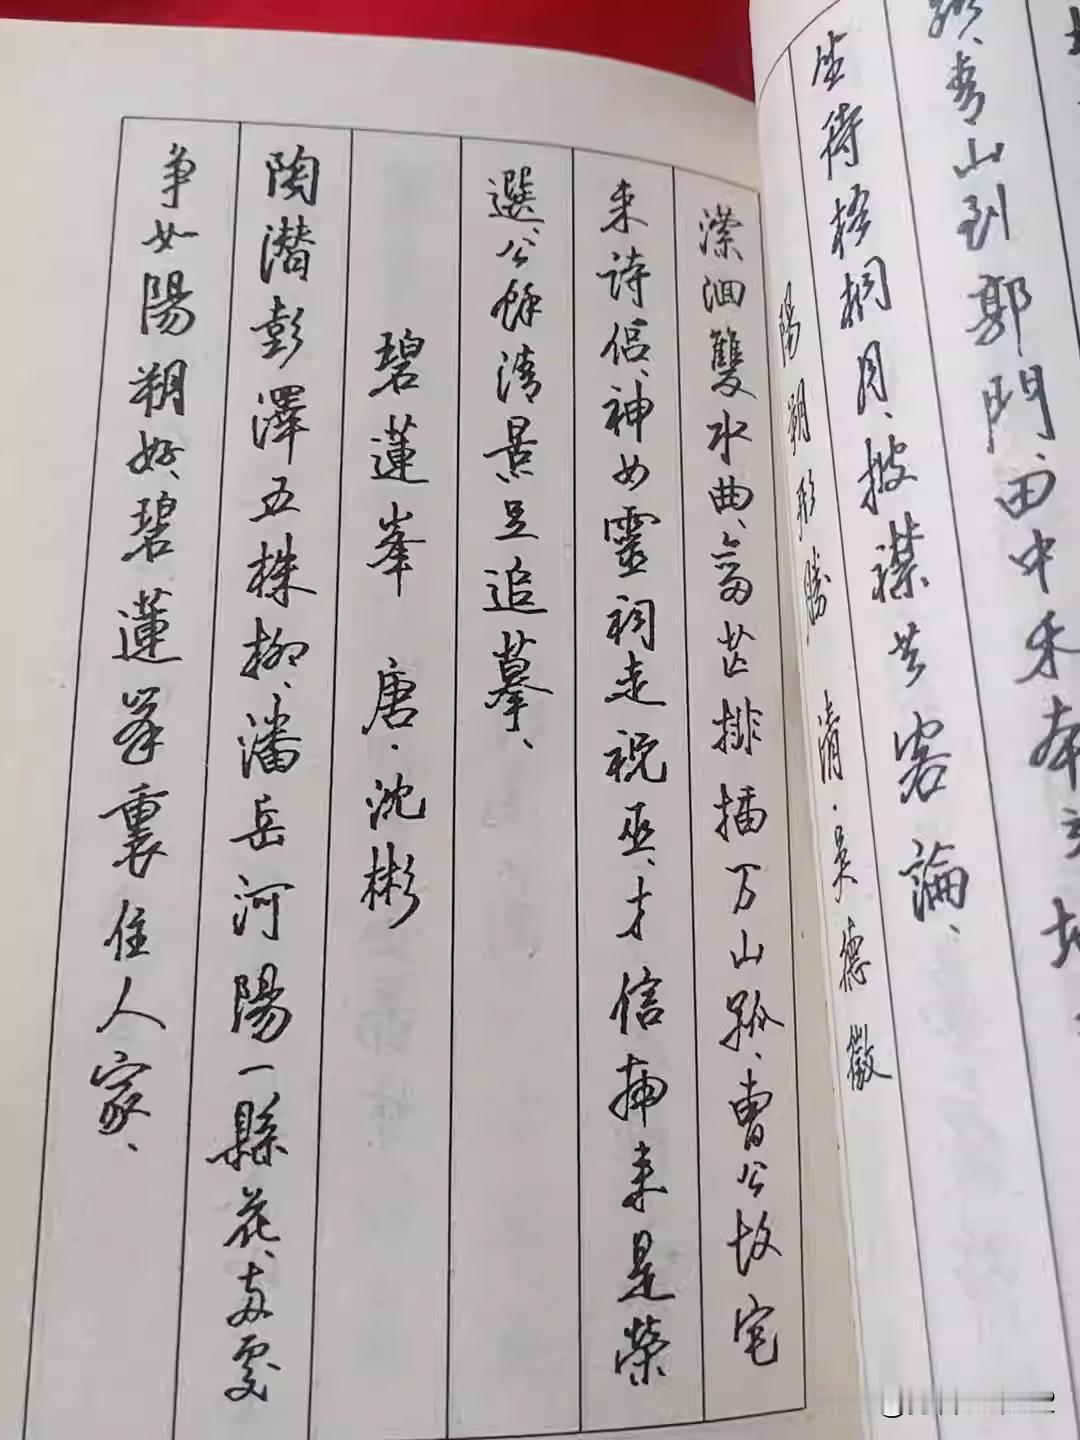 青山到郭門、田中禾本
坐待梧桐月、披襟共客論、
陽朔形勝 清·吳德徵
潆洄雙水曲、排插万山孤、曹公故宅
来詩侣、神女靈祠走祝巫、才信補来是榮
選、公餘清景足追摹、
碧蓮峯 唐·沈彬
陶潜彭澤五株柳、潘岳河陽一縣花、两處
争如陽朔好、碧蓮峯裏住人家、